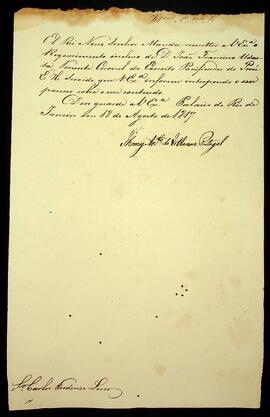 El Rei Nosso Senhor Manda remetter a V Ex.ª o
Requerimento incluso de D. João Francisco
Tenente Coronel do Exercito Pacificador de
E H Servido que V Ex.ª informe interpondo o seu
parecer sobre o seu contendo.
Deos guarde a V Ex.ª Palacio do Rio de
Janeiro em 18 de Agosto de 1817
Thomaz Ant.º de Villanova Portugal
Sr. Carlos Frederico Lecor